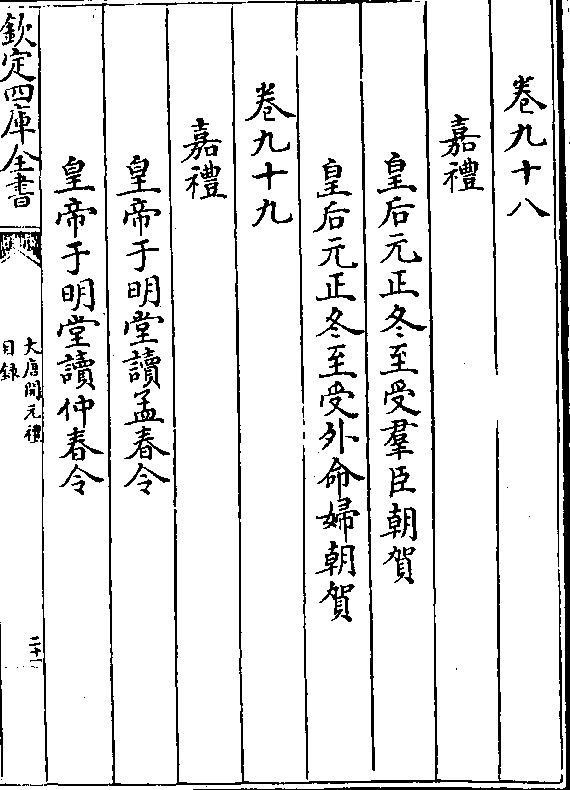 卷九十八
嘉禮
皇后元正冬至受羣臣朝賀
皇后元正冬至受外命婦朝賀
卷九十九
嘉禮
皇帝于明堂讀孟春令
皇帝于明堂讀仲春令
欽定四庫全書
大唐開元禮
目錄
二十一